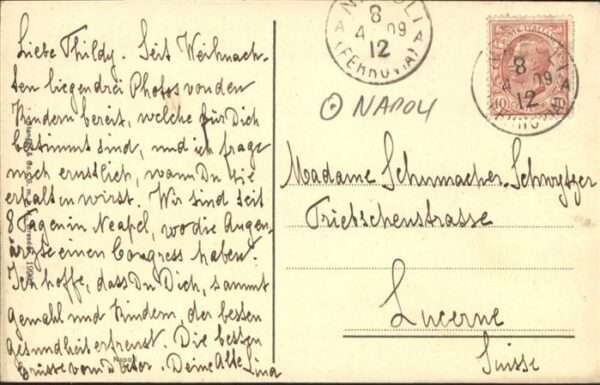 Liebe Thildy. Seit Weihnach-
ten liegen drei Photos von den
Kindern bereit, welche für Dich
bestimmt sind, und ich frage
mich ernstlich, wann Du sie
erhalten wirst. Wir sind seit
8 Tagen in Neapel, wo die Augen-
ärzte einen Congress haben.
Ich hoffe, dass Du Dich, sammt
Gemahl und Kindern, der besten
Gesundheit erfreust. Die besten
Grüsse vom Deine Alte Lina
NAPOLI
8
4 09
12
(FERROVIA)
NAPOLI
8
4 09
12
10
Madame Schumacher-Schwytzer
Trietschenstrasse
Lucerne
Suisse